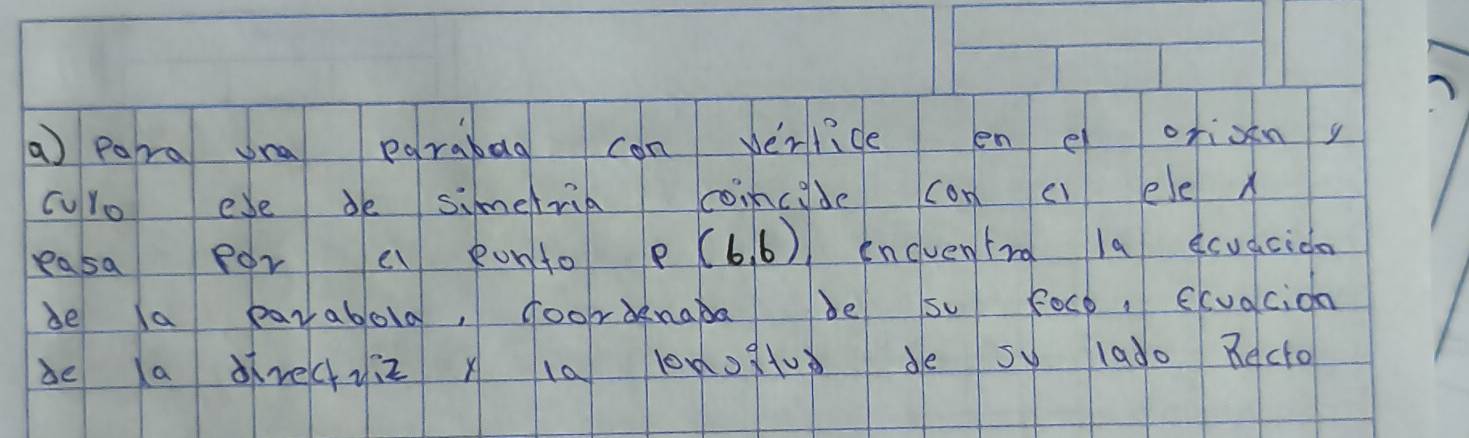 a) Para una parábola con vértice en el origen y
cuyo eje de simetría coincide con el eje X
pasa por el punto P (6,6), encuentra la ecuación
de la parabola, coordenada de su foco, ecuación
de la directriz y la longitud de su lado Recto